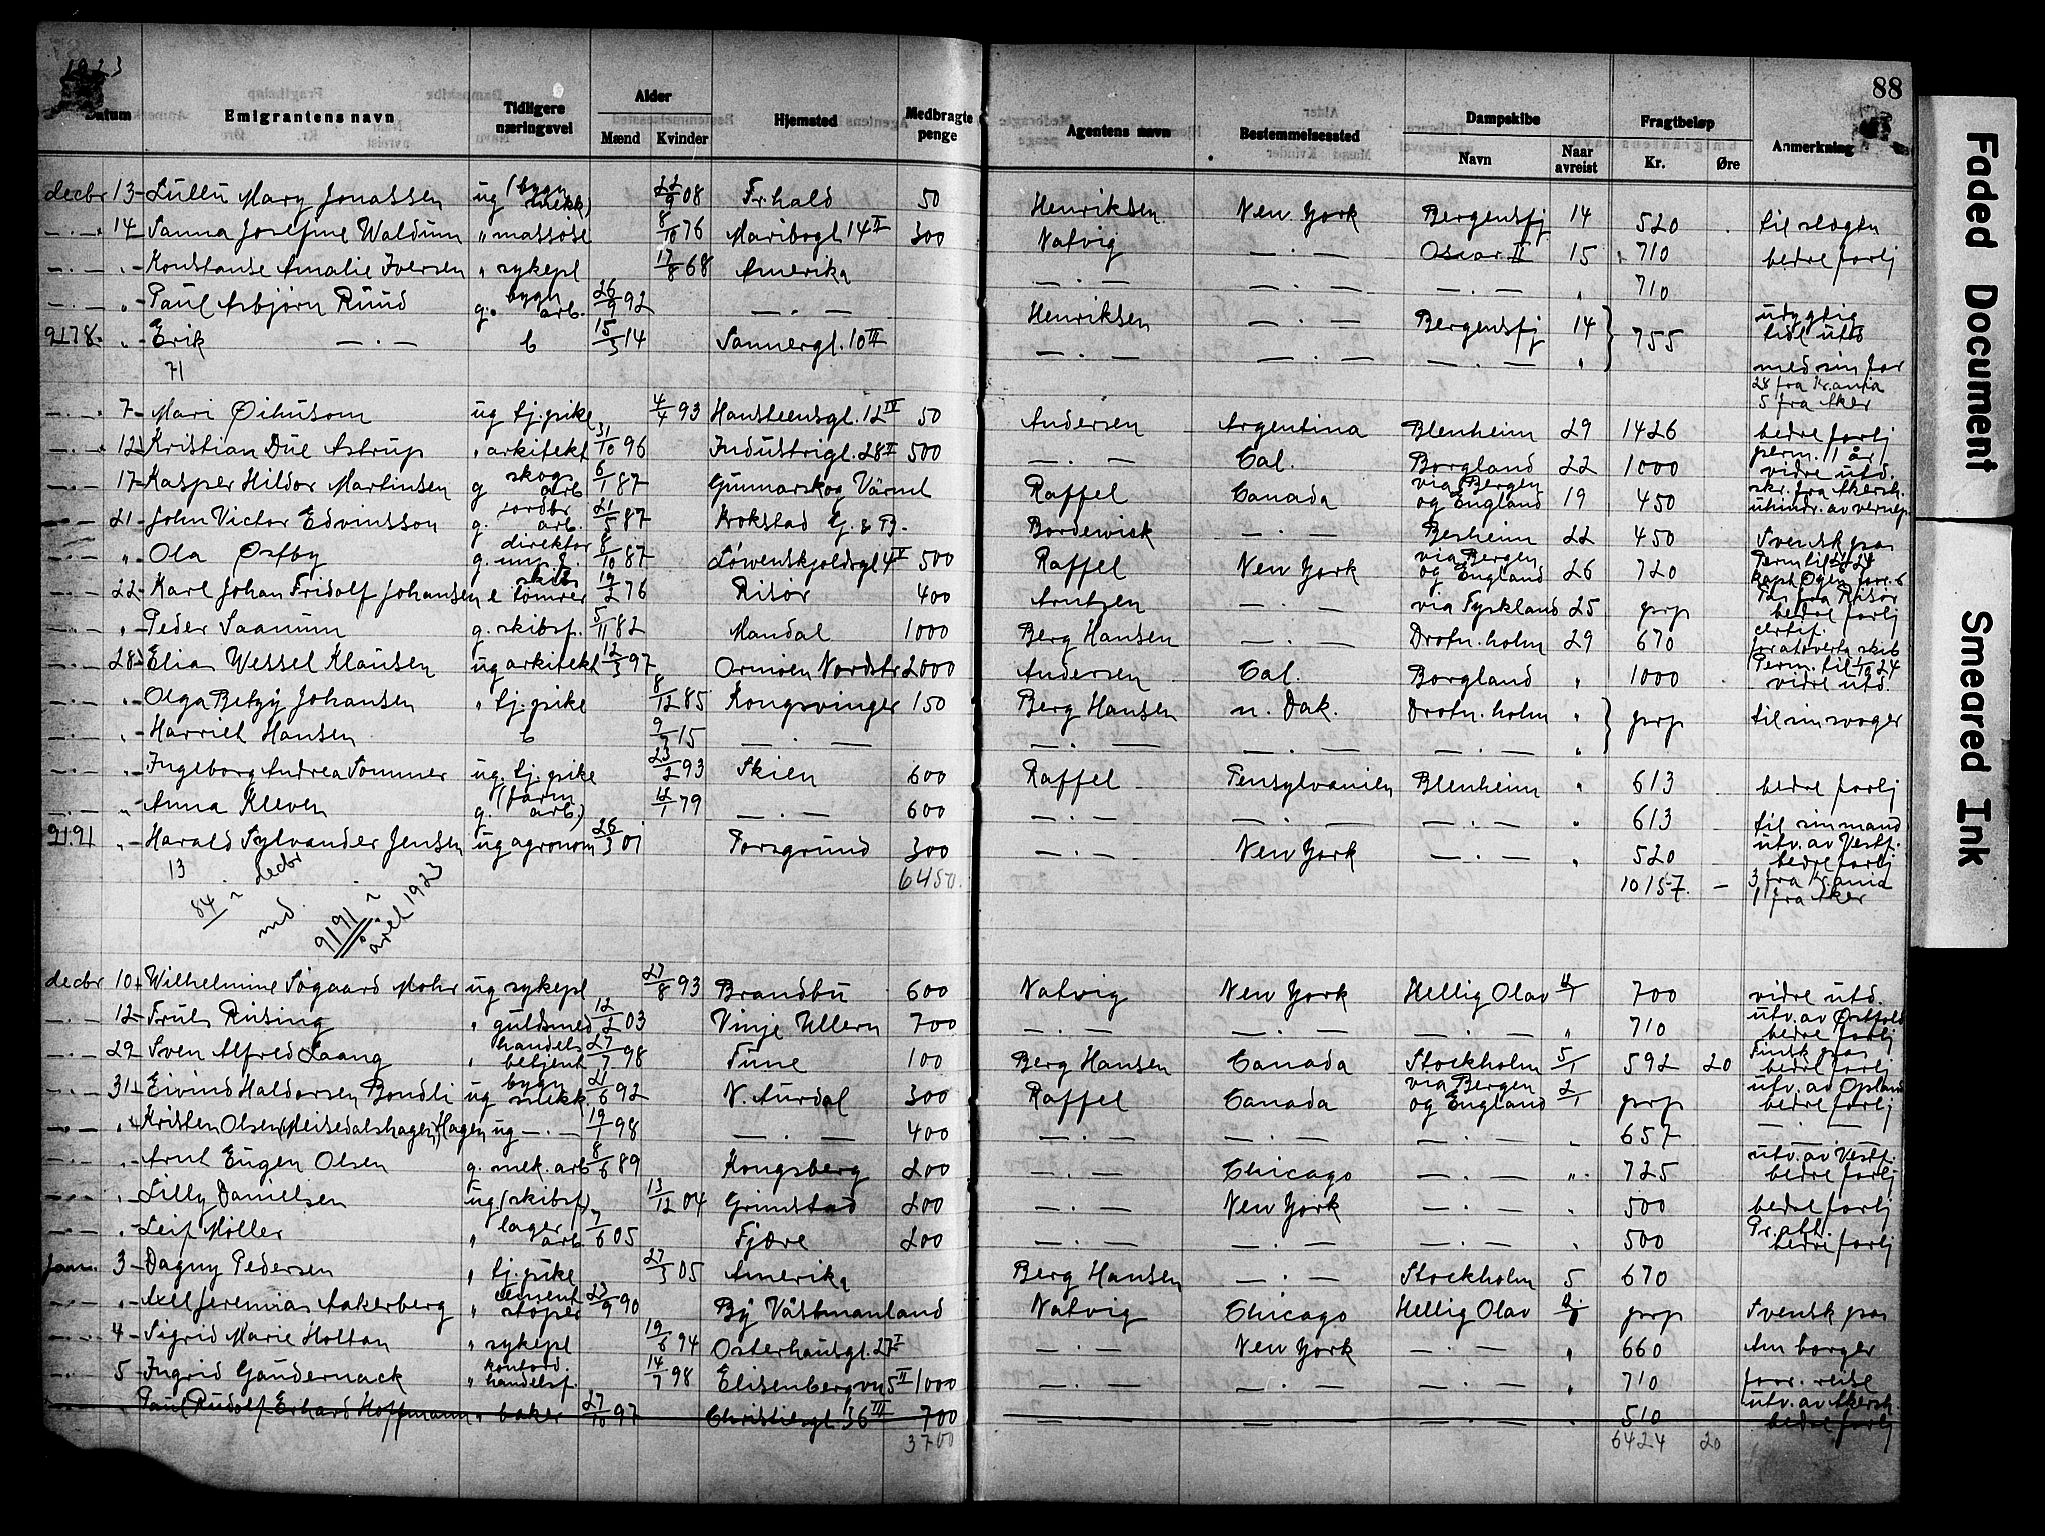 1923
88
Datum Emigrantens navn Tidligere næringsvei Alder Mænd Kvinder Hjemsted Medbragte penge Agentens navn Bestemmelsessted Dampskibe Navn Naar avreist Fragtbeløp Kr. Øre Anmerkning
decbr 13 Lullu Mary Jonassen ug (bygn snekk) 22/9 08 Fr.hald 50 Henriksen New York Bergensfj 14 520 til slegtn
" 14 Sanna Josefine Waldum " massøse 8/10 76 Maribogt. 14 II 300 Natvig — . — Oscar II 15 710 bedre forlj
" Konstanse Amalie Iversen " sykepl 17/8 68 Amerika — . — — . — — . — " 710
" Paul Asbjørn Ruud g. bygn arb. 26/9 92 — . — Henriksen — . — Bergensfj 14 755 udygtig tidl utv
9178 " Erik — . — b 15/5 14 Sannergt. 10 III — . — — . — — . — " med sin far
71 28 fra Kr.ania
5 fra Aker
" 7 Mari Øihusom ug tj.pike 4/4 93 Hansteensgt. 12 IV 50 Andersen Argentina Blenheim 29 1426 bedre forlj
" 12 Kristian Due Astrup " arkitekt 31/10 96 Industrigt. 28 II 500 — . — Cal. Borgland 22 1000 perm. 1 år vidre utd.
" 17 Kasper Hildor Martinsen g skog arb 6/1 87 Gunnarskog Värml Raffel Canada via Bergen og England 19 450 skr. fra Akersh. uhindr. av vernepl
" 21 John Victor Edvinsson g. jordbr arb. 21/5 87 Krokstad G. & B. Bordewick — . — Besheim 22 450 Svensk pas
" Ola Østby g. direktor 8/10 87 Løwenskjoldsgt 4 II 500 Raffel New York via Bergen og England 26 720
" 22 Karl Johan Fridolf Johansen e skibs tømrer 19/2 76 Risør 400 Arntzen — . — via Tyskland 25 prp Pas fra Risør bedre forlj
" Peder Saanum g. skibsf. 5/11 82 Mandal 1000 Berg Hansen — . — Drotn.holm 29 670 certif. for at overta skib
" 28 Elias Wessel Klausen ug arkitekt 12/3 97 Ormøen Nordstr 2000 Andersen Cal. Borgland " 1000 Perm. til 1/10 24 vidre utd.
" Olga Betzy Johansen " tj.pike 8/12 85 Kongsvinger 150 Berg Hansen n. Dak. Drotn.holm " prp til sin svoger
" Harriet Hansen b 9/7 15 — . — — . — — . — "
" Ingeborg Andrea Sommer ug. tj.pike 23/2 93 Skien 600 Raffel Pensylvanien Blenheim " 613 bedre forlj
" Anna Kleven g. (farm arb.) 12/1 79 — . — 600 — . — — . — — . — " 613 til sin mand
9191 " Harald Sylvander Jensen ug agronom 26/3 01 Porsgrund 300 — . — New York — . — " 520 utv. av Vestf. bedre forlj
13 6450. 10157. — 3 fra Kr.ania
1 fra Aker
84 i decbr md.
9191 i året 1923
decbr 10 Wilhelmine Søgaard Mohr ug sykepl 27/8 93 Brandbu 600 Natvig New York Hellig Olav 11/1 700 vidre utd.
" 12 Truls Rising " guldsmed 12/2 03 Vinje Ullern 700 — . — — . — — . — " 710 utv. av Østfold bedre forlj
" 29 Sven Alfred Laang " handels betjent 27/7 98 Tune 100 Berg Hansen Canada Stockholm 5/1 592 20 Finsk pas bedre forlj
" 31 Eivind Haldorsen Bondli ug bygn snekk 21/6 92 N. Aurdal 300 Raffel Canada via Bergen og England 2/1 prp utv. av Opland bedre forlj
" Kristen Olsen (Meisedalshagen) Hagen ug — . — 19/1 98 — . — 400 — . — — . — — . — " 657 — . —
" Arnt Eugen Olsen g. mek. arb 8/6 89 Kongsberg 200 — . — Chicago — . — " 725 utv. av Vestf. bedre forlj
" Lilly Danielsen ug (skibsf) 13/12 04 Grimstad 200 New York — . — " 500 bedre forlj
" Leif Møller " lager arb 7/6 05 Fjære 200 — . — — . — — . — " 500 Pr.att. bedre forlj
Jann. 3 Dagny Pedersen " tj.pike 27/3 05 Amerika Berg Hansen — . — Stockholm 5 670
" Axel Jeremias Aakerberg " cement støper 23/9 90 By Västmanland Natvig Chicago Hellig Olav prp Svensk pas
" 4 Sigrid Marie Holtan " sykepl 19/6 94 Osterhausgt. 27 I — . — New York — . — " 660 Am borger
" 5 Ingrid Gaudernack " kontord. handelsf. 14/7 98 Elisenbergvn 5 II 1000 — . — — . — — . — " 710 forr. reise
" Paul Rudolf Erhard Hoffmann " baker 27/10 97 Christiesgt. 36 III 700 — . — — . — — . — " 510 utv. av Akersh bedre forlj
3700 6424 20
Faded Document
Smeared Ink